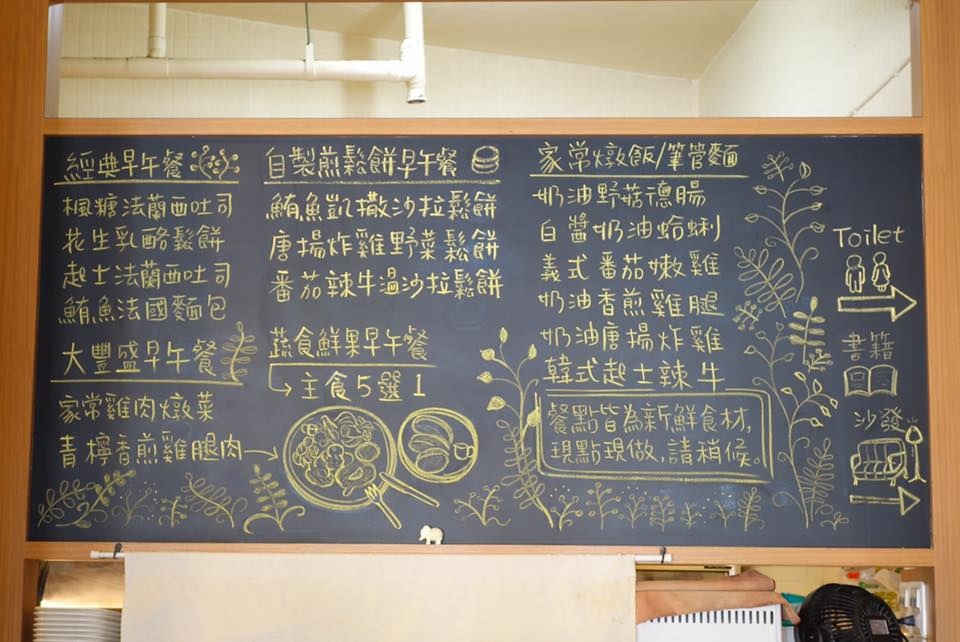 經典早午餐
楓糖法蘭西吐司
花生乳酪鬆餅
起士法蘭西吐司
鮪魚法國麵包
大豐盛早午餐
家常雞肉燉菜
青檸香煎雞腿肉
自製煎鬆餅早午餐
鮪魚凱撒沙拉鬆餅
唐揚炸雞野菜鬆餅
番茄辣牛溫沙拉鬆餅
蔬食鮮果早午餐
主食5選1
家常燉飯/筆管麵
奶油野菇德腸
白醬奶油蛤蜊
義式番茄嫩雞
奶油香煎雞腿
奶油唐揚炸雞
韓式起士辣牛
餐點皆為新鮮食材,
現點現做,請稍候。
Toilet
書籍
沙發